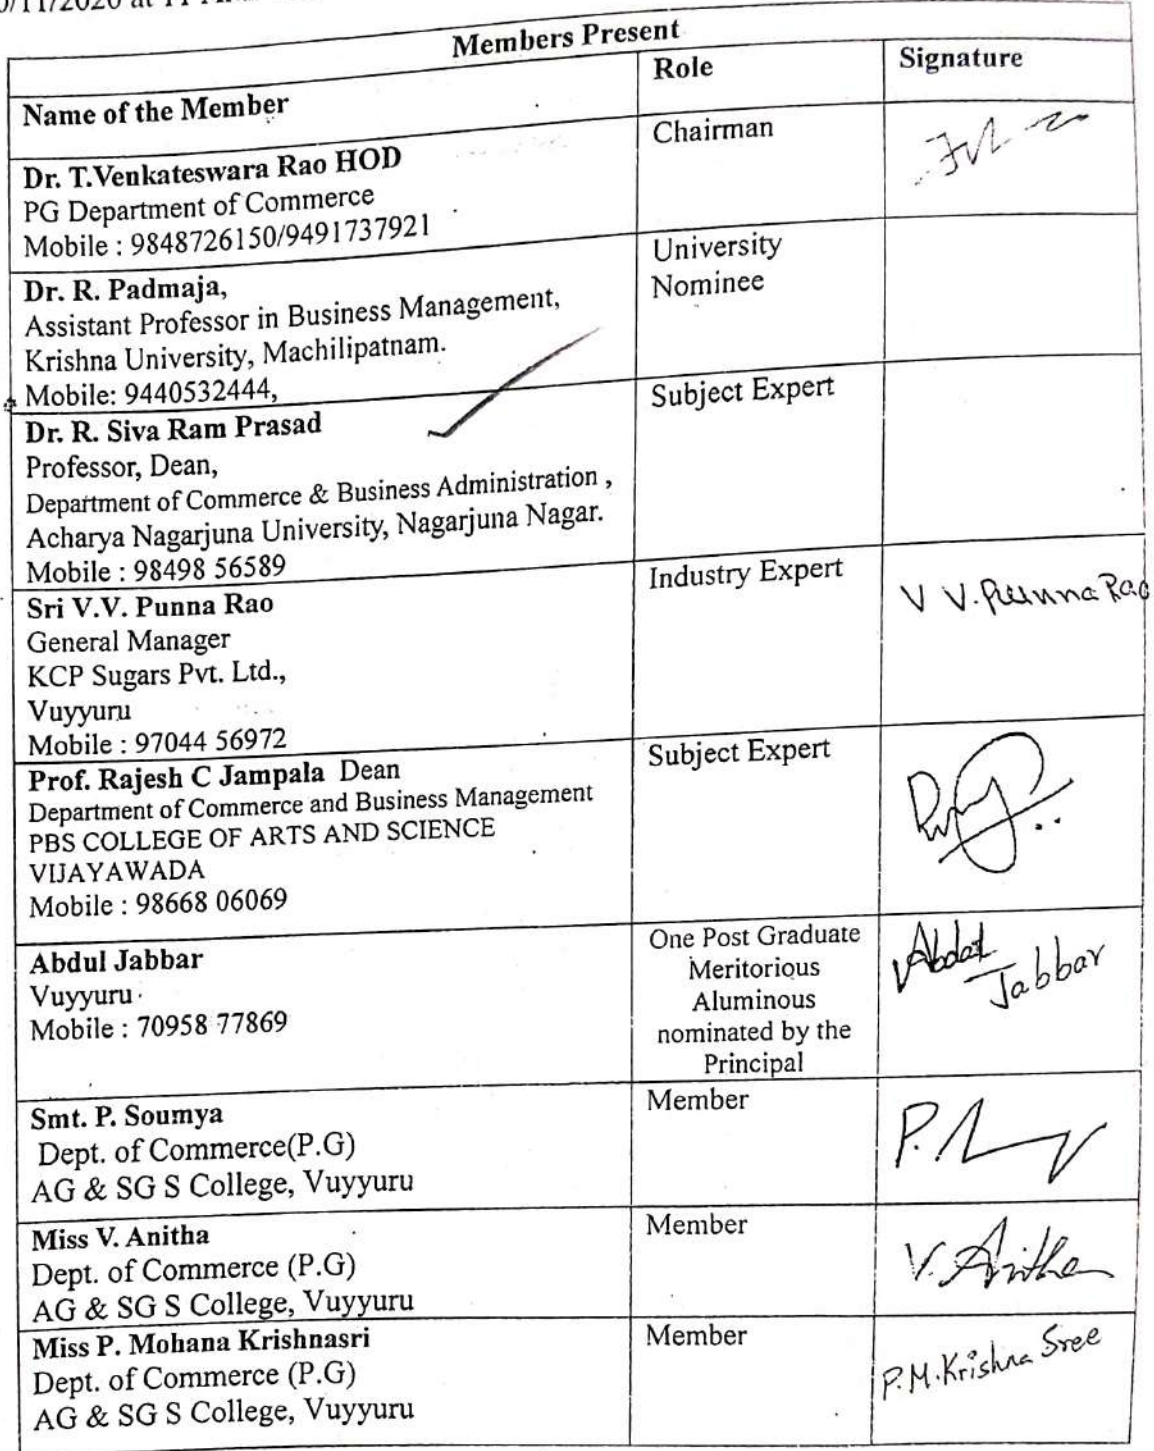 Members Present
Name of the Member
Role
Signature
Dr. T.Venkateswara Rao HOD
PG Department of Commerce
Mobile : 9848726150/9491737921
Chairman
Dr. R. Padmaja,
Assistant Professor in Business Management,
Krishna University, Machilipatnam.
Mobile: 9440532444,
University
Nominee
Dr. R. Siva Ram Prasad
Professor, Dean,
Department of Commerce & Business Administration ,
Acharya Nagarjuna University, Nagarjuna Nagar.
Mobile : 98498 56589
Subject Expert
Sri V.V. Punna Rao
General Manager
KCP Sugars Pvt. Ltd.,
Vuyyuru
Mobile : 97044 56972
Industry Expert
V V. Punna Rao
Prof. Rajesh C Jampala Dean
Department of Commerce and Business Management
PBS COLLEGE OF ARTS AND SCIENCE
VIJAYAWADA
Mobile : 98668 06069
Subject Expert
Abdul Jabbar
Vuyyuru
Mobile : 70958 77869
One Post Graduate
Meritorious
Aluminous
nominated by the
Principal
Abdul
Jabbar
Smt. P. Soumya
Dept. of Commerce(P.G)
AG & SG S College, Vuyyuru
Member
P.
Miss V. Anitha
Dept. of Commerce (P.G)
AG & SG S College, Vuyyuru
Member
V. Anitha
Miss P. Mohana Krishnasri
Dept. of Commerce (P.G)
AG & SG S College, Vuyyuru
Member
P.M.Krishna Sree